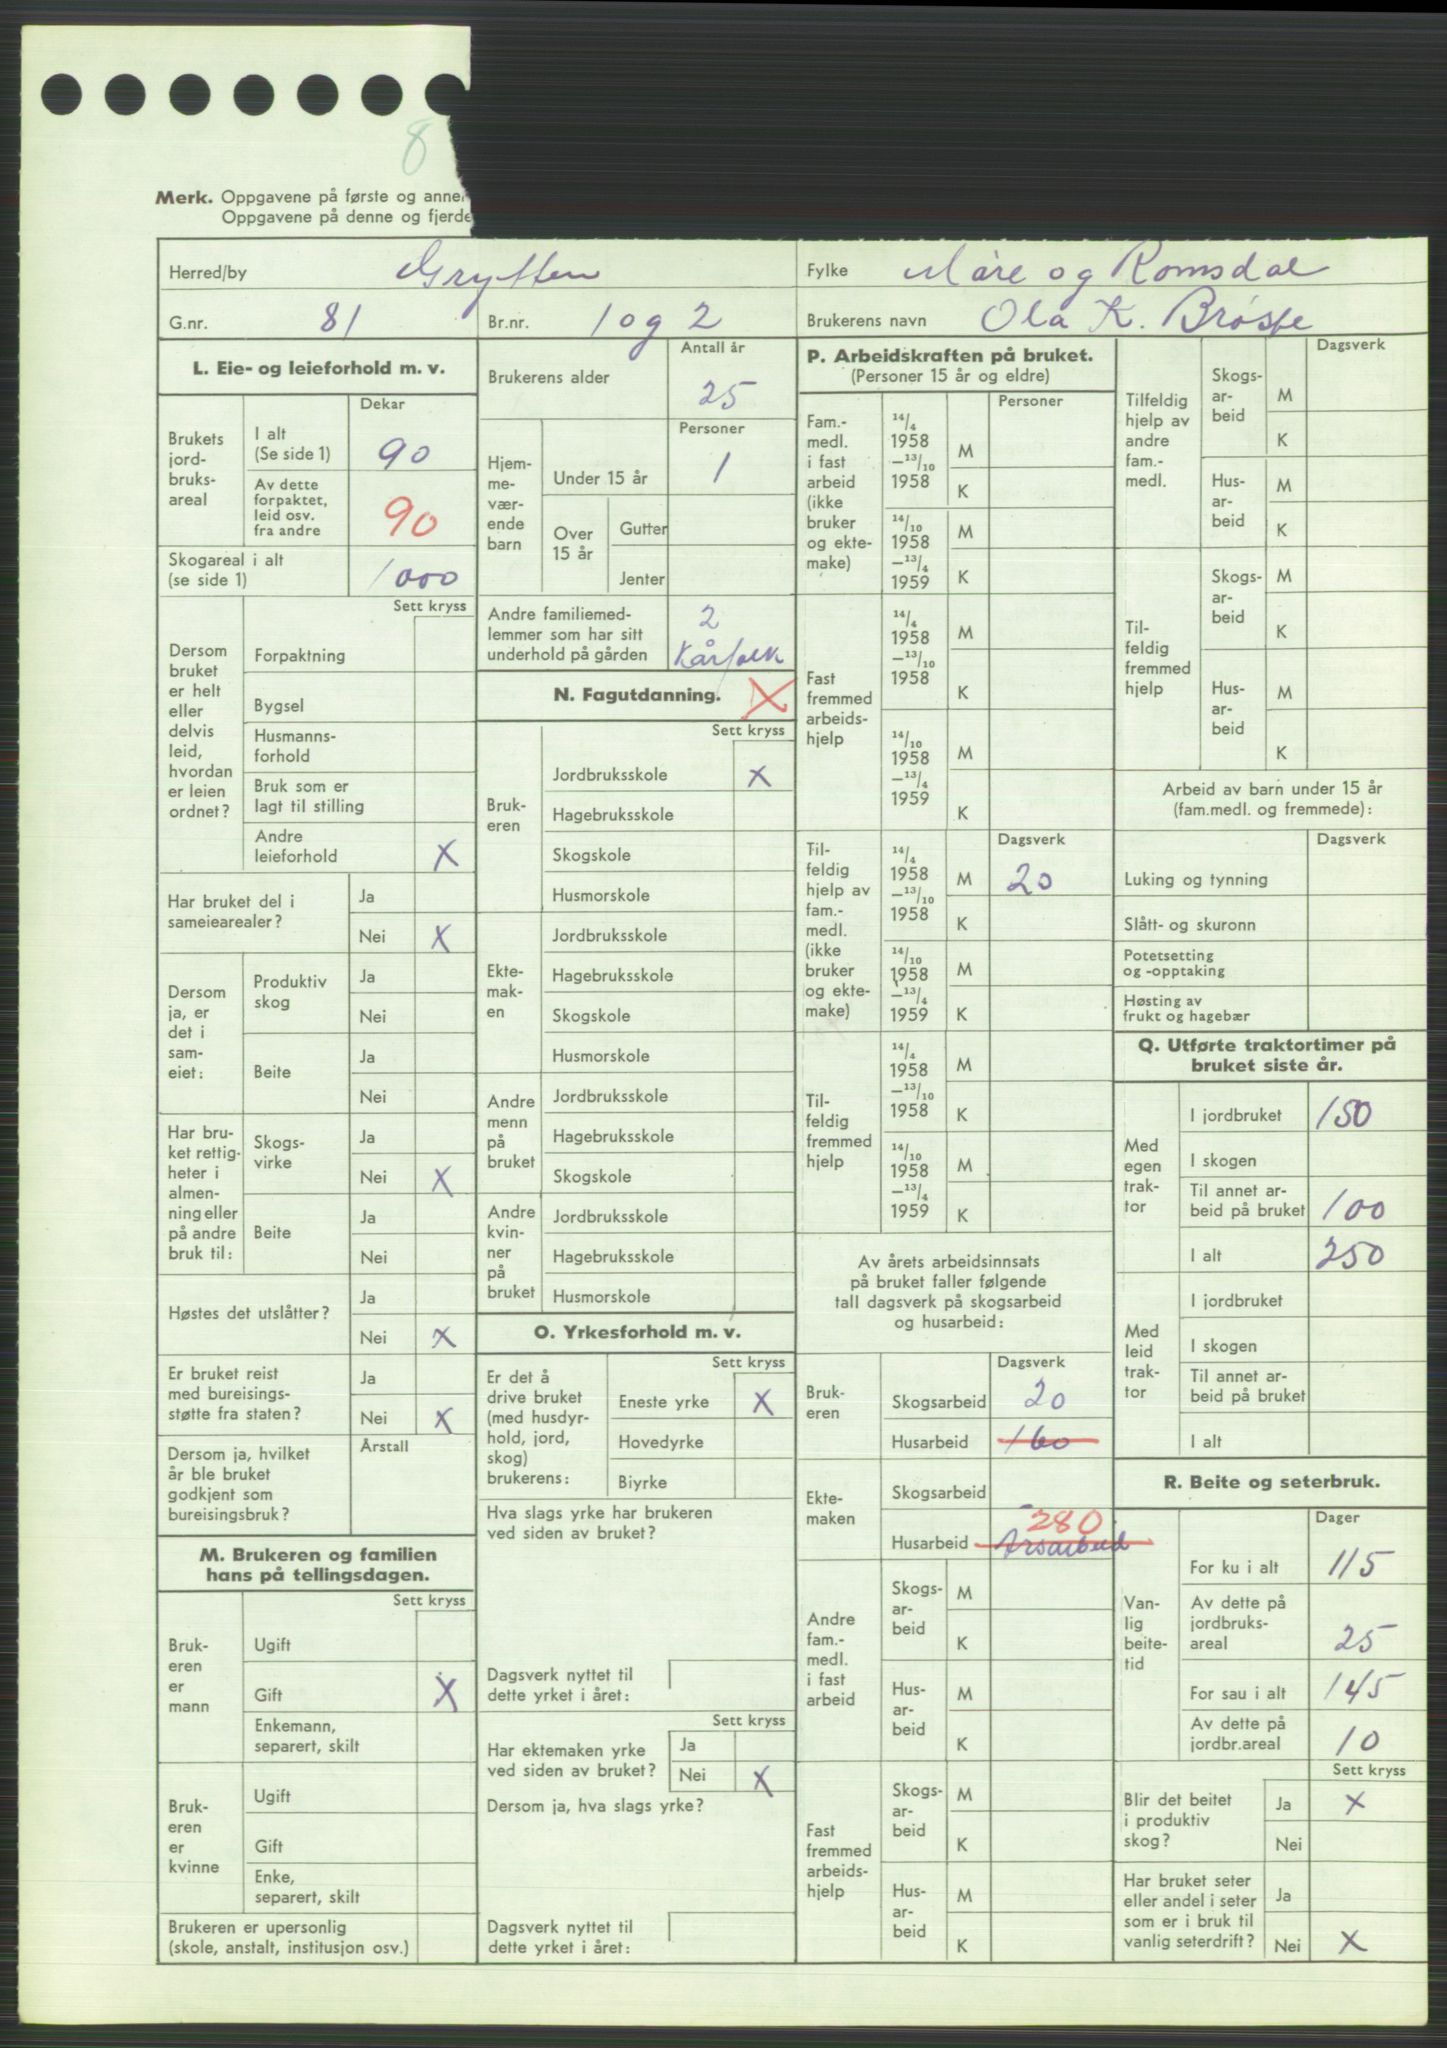 8
Merk. Oppgavene på første og anne
Oppgavene på denne og fjerde
Herred/by Grytten
Fylke Møre og Romsdal
G.nr. 81
Br.nr. 1 og 2
Brukerens navn Ola K. Brøste
L. Eie- og leieforhold m. v.
Dekar
Brukets jord-
bruks-
areal
I alt
(Se side 1) 90
Av dette
forpaktet,
leid osv.
fra andre 90
Skogareal i alt
(se side 1) 1000
Sett kryss
Dersom
bruket
er helt
eller
delvis
leid,
hvordan
er leien
ordnet?
Forpaktning
Bygsel
Husmanns-
forhold
Bruk som er
lagt til stilling
Andre
leieforhold X
Har bruket del i
sameiearealer?
Ja
Nei X
Dersom
ja, er
det i
sam-
eiet:
Produktiv
skog
Ja
Nei
Beite
Ja
Nei
Har bru-
ket rettig-
heter i
almen-
ning eller
på andre
bruk til:
Skogs-
virke
Ja
Nei X
Beite
Ja
Nei
Høstes det utslåtter?
Ja
Nei X
Er bruket reist
med bureisings-
støtte fra staten?
Ja
Nei X
Dersom ja, hvilket
år ble bruket
godkjent som
bureisingsbruk?
Årstall
M. Brukeren og familien
hans på tellingsdagen.
Sett kryss
Bruk-
eren
er
mann
Ugift
Gift X
Enkemann,
separert, skilt
Bruk-
eren
er
kvinne
Ugift
Gift
Enke,
separert, skilt
Brukeren er upersonlig
(skole, anstalt, institusjon osv.)
Antall år
Brukerens alder 25
Personer
Hjem-
me-
vær-
ende
barn
Under 15 år 1
Over
15 år
Gutter
Jenter
Andre familiemed-
lemmer som har sitt
underhold på gården
2
Kårfolk
N. Fagutdanning. X
Sett kryss
Bruk-
eren
Jordbruksskole X
Hagebruksskole
Skogskole
Husmorskole
Ekte-
mak-
en
Jordbruksskole
Hagebruksskole
Skogskole
Husmorskole
Andre
menn
på
bruket
Jordbruksskole
Hagebruksskole
Skogskole
Andre
kvin-
ner
på
bruket
Jordbruksskole
Hagebruksskole
Husmorskole
O. Yrkesforhold m. v.
Sett kryss
Er det å
drive bruket
(med husdyr-
hold, jord,
skog)
brukerens:
Eneste yrke X
Hovedyrke
Biyrke
Hva slags yrke har brukeren
ved siden av bruket?
Dagsverk nyttet til
dette yrket i året:
Sett kryss
Har ektemaken yrke
ved siden av bruket?
Ja
Nei X
Dersom ja, hva slags yrke?
Dagsverk nyttet til
dette yrket i året:
P. Arbeidskraften på bruket.
(Personer 15 år og eldre)
Personer
Fam.-
medl.
i fast
arbeid
(ikke
bruker
og ekte-
make)
14/4
1958
—13/10
1958
M
K
14/10
1958
—13/4
1959
M
K
Fast
fremmed
arbeids-
hjelp
14/4
1958
—13/10
1958
M
K
14/10
1958
—13/4
1959
M
K
Dagsverk
Til-
feldig
hjelp av
fam.-
medl.
(ikke
bruker
og ekte-
make)
14/4
1958
—13/10
1958
M 20
K
14/10
1958
—13/4
1959
M
K
Til-
feldig
fremmed
hjelp
14/4
1958
—13/10
1958
M
K
14/10
1958
—13/4
1959
M
K
Av årets arbeidsinnsats
på bruket faller følgende
tall dagsverk på skogsarbeid
og husarbeid:
Dagsverk
Bruk-
eren
Skogsarbeid 20
Husarbeid 160
Ekte-
maken
Skogsarbeid
280
Husarbeid Årsarbeid
Andre
fam.-
medl.
i fast
arbeid
Skogs-
ar-
beid
M
K
Hus-
ar-
beid
M
K
Fast
fremmed
arbeids-
hjelp
Skogs-
ar-
beid
M
K
Hus-
ar-
beid
M
K
Dagsverk
Tilfeldig
hjelp av
andre
fam.-
medl.
Skogs-
ar-
beid
M
K
Hus-
ar-
beid
M
K
Til-
feldig
fremmed
hjelp
Skogs-
ar-
beid
M
K
Hus-
ar-
beid
M
K
Arbeid av barn under 15 år
(fam.medl. og fremmede):
Dagsverk
Luking og tynning
Slått- og skuronn
Potetsetting
og -opptaking
Høsting av
frukt og hagebær
Q. Utførte traktortimer på
bruket siste år.
Med
egen
trak-
tor
I jordbruket 150
I skogen
Til annet ar-
beid på bruket 100
I alt 250
Med
leid
trak-
tor
I jordbruket
I skogen
Til annet ar-
beid på bruket
I alt
R. Beite og seterbruk.
Dager
Van-
lig
beite-
tid
For ku i alt 115
Av dette på
jordbruks-
areal 25
For sau i alt 145
Av dette på
jordbr.areal 10
Sett kryss
Blir det beitet
i produktiv
skog?
Ja X
Nei
Har bruket seter
eller andel i seter
som er i bruk til
vanlig seterdrift?
Ja
Nei X